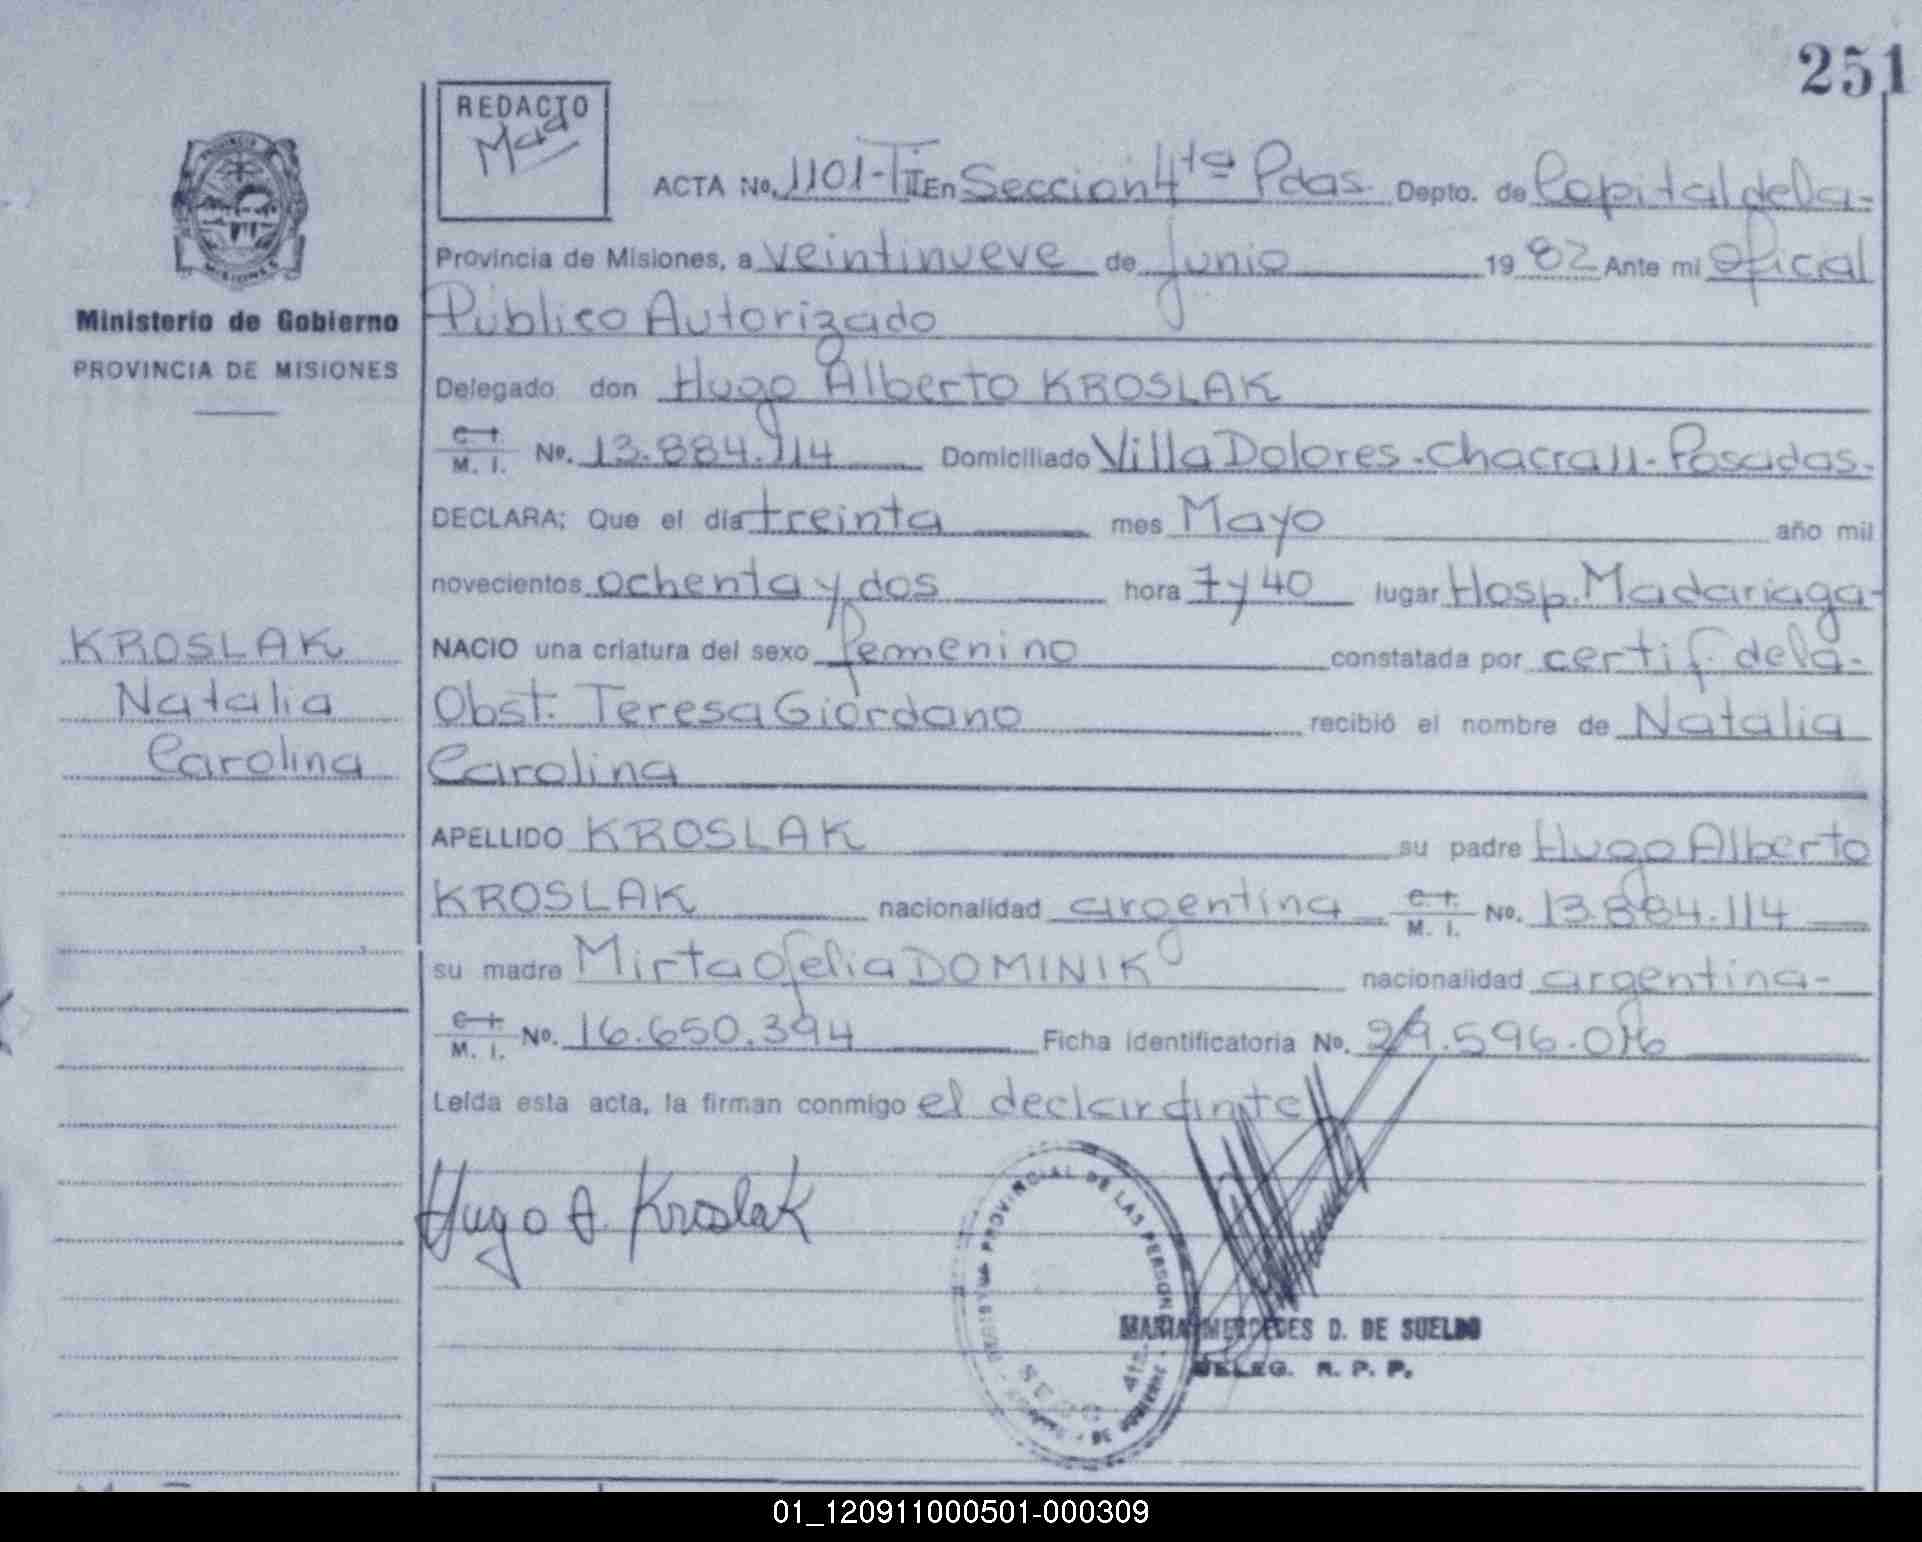 251
REDACTO
PROVINCIA
MISIONES
Ministerio de Gobierno
PROVINCIA DE MISIONES
ACTA No. 1101-TII En Seccion 4ta Pdas. Depto. de Capital de la-
Provincia de Misiones, a veintinueve de junio 19 82 Ante mi oficial
Público Autorizado
Delegado don Hugo Alberto KROSLAK
C. I. M. I. No. 13.884.114 Domiciliado Villa Dolores - Chacra 11 - Posadas.
DECLARA: Que el día treinta mes Mayo año mil
novecientos ochenta y dos hora 7 y 40 lugar Hosp. Madariaga-
KROSLAK
Natalia
Carolina
NACIO una criatura del sexo femenino constatada por certif. de la-
Obst. Teresa Giordano recibió el nombre de Natalia
Carolina
APELLIDO KROSLAK su padre Hugo Alberto
KROSLAK nacionalidad argentina C. I. M. I. No. 13.884.114
su madre Mirta Ofelia DOMINIK nacionalidad argentina-
C. I. M. I. No. 16.650.394 Ficha identificatoria No. 29.596.016
Leída esta acta, la firman conmigo el declarante
Hugo A. Kroslak
PROVINCIAL DE LAS PERSON
MARIA MERCEDES D. DE SUELDO
DELEG. R. P. P.
01_120911000501-000309